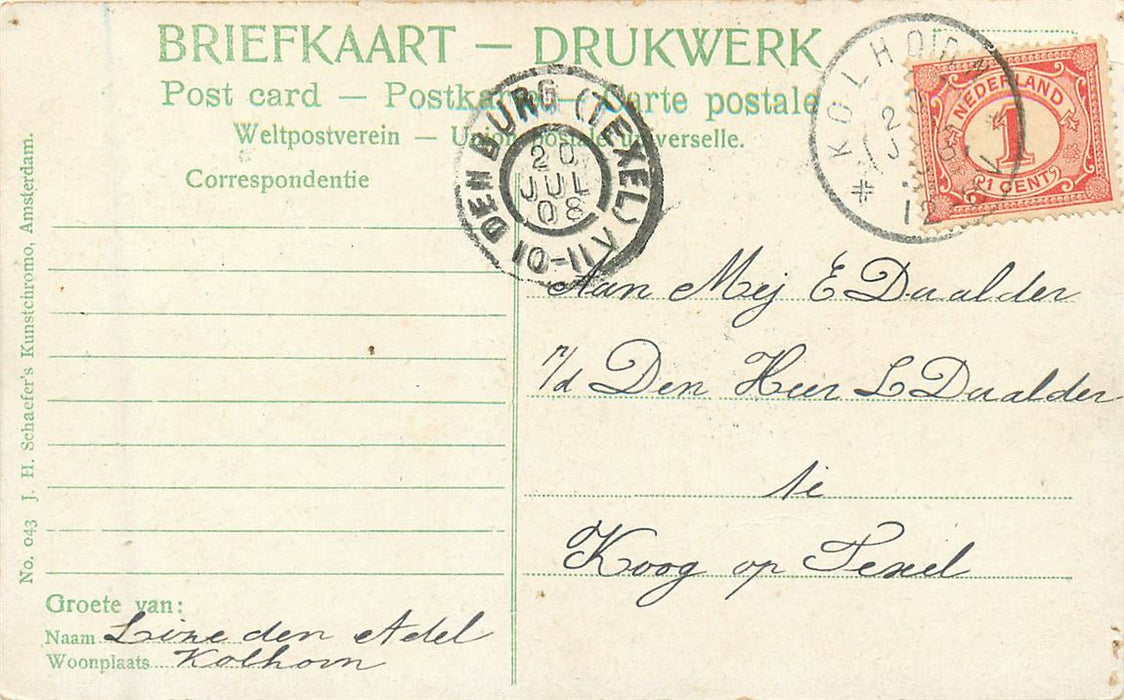 BRIEFKAART — DRUKWERK
Post card — Postkarte — Carte postale
Weltpostverein — Union postale universelle.
Correspondentie
KOLHORN
2
J
12
NEDERLAND
1
1 CENT
DEN BURG (TEXEL)
20
JUL
08
Aan Mej E Daalder
p/d Den Heer L Daalder
te
Koog op Texel
Groete van:
Naam Line den Adel
Woonplaats Kolhorn
No. 043 J. H. Schaefer's Kunstchromo, Amsterdam.